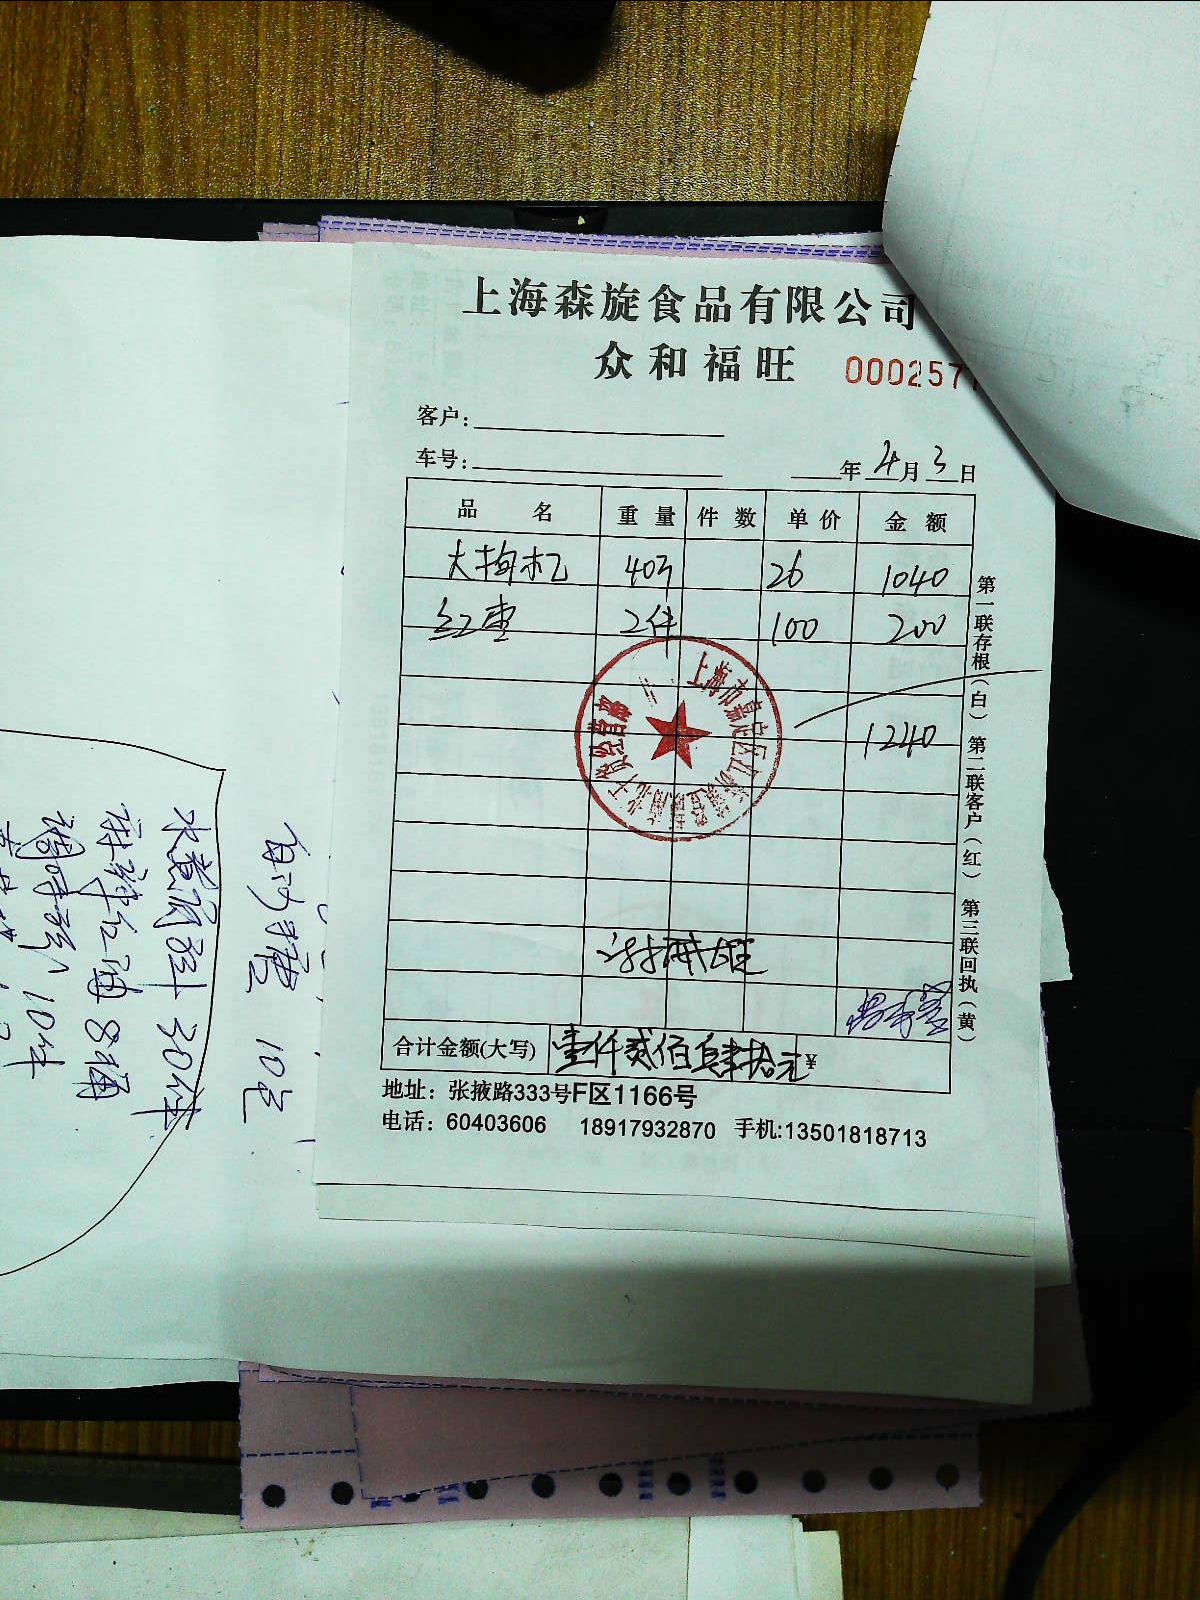 上海森旋食品有限公司
众和福旺 0002577
客户:
车号: 年 4月 3日
品名 重量 件数 单价 金额
大枸杞 40斤 26 1040
红枣 2件 100 200
1240
合计金额(大写) 壹仟贰佰肆拾元 ¥
地址：张掖路333号F区1166号
电话：60403606 18917932870 手机:13501818713
第一联存根(白) 第二联客户(红) 第三联回执(黄)
上海市嘉定区江桥镇
经营部
自动糖 10包
30件
8桶
10件